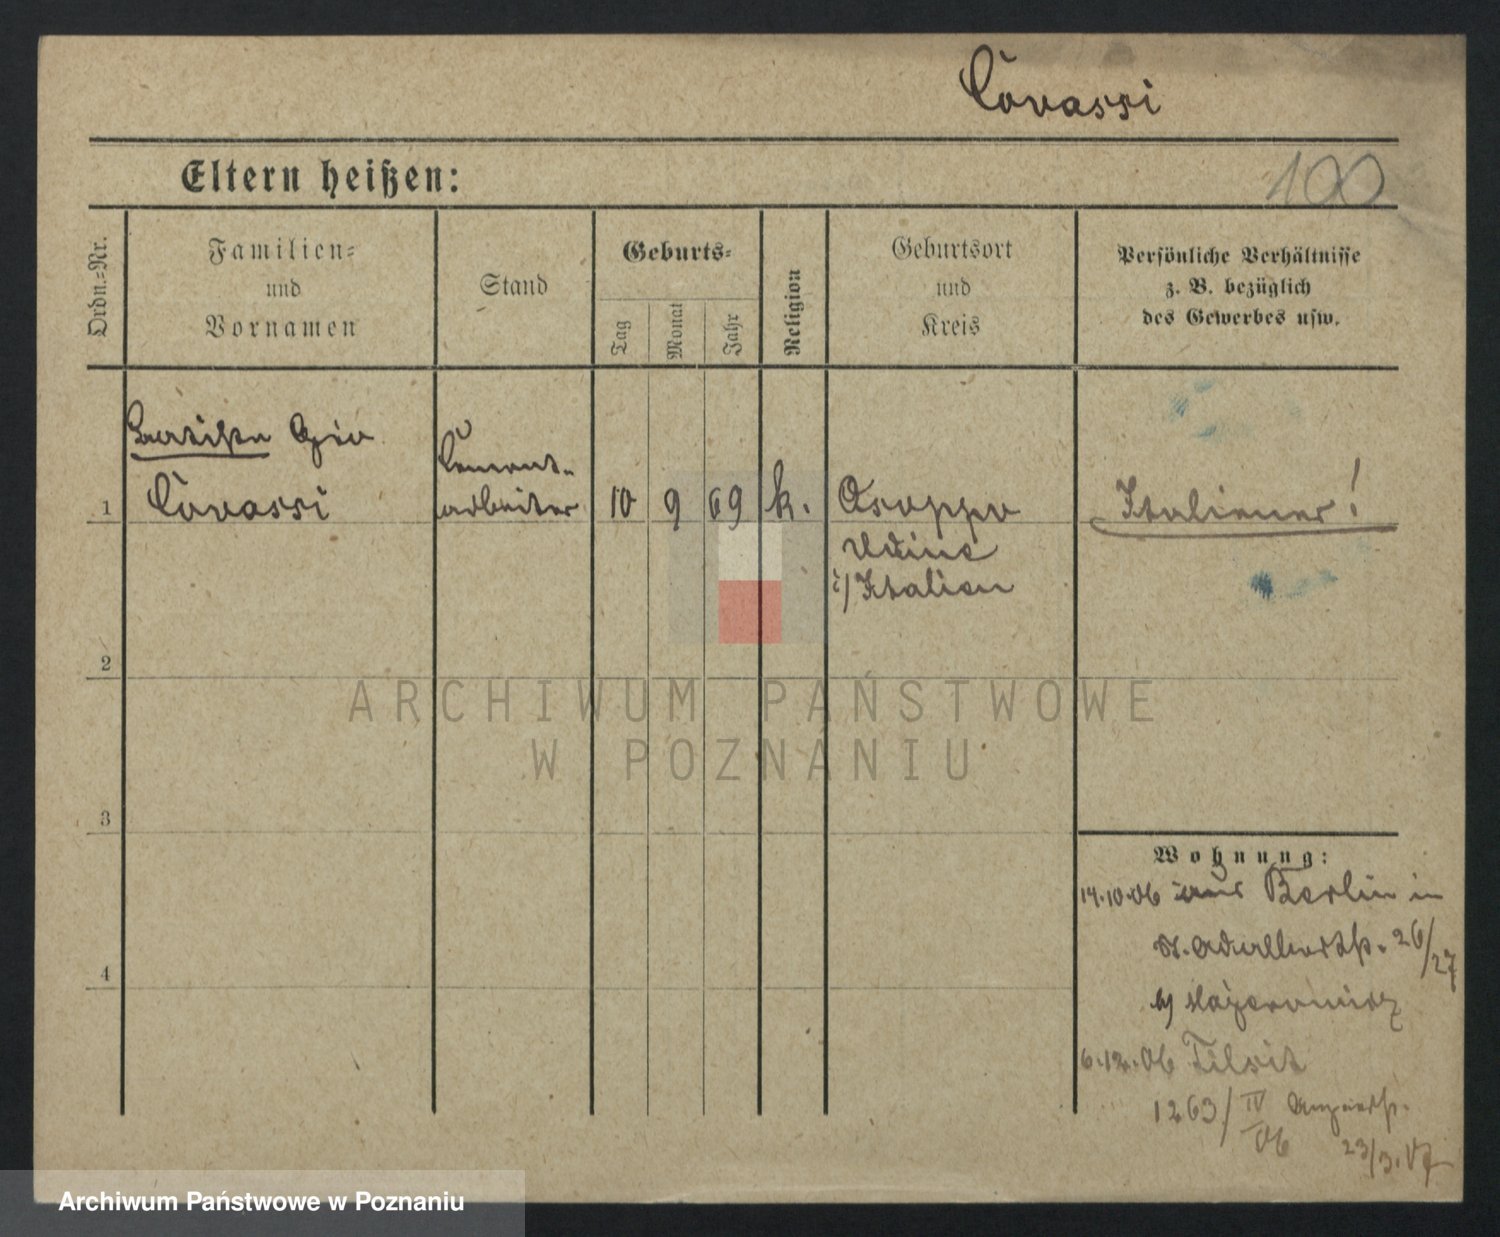 Covassi
Eltern heißen:
100
Ordn.-Nr.
Familien-
und
Vornamen
Stand
Geburts-
Tag
Monat
Jahr
Religion
Geburtsort
und
Kreis
Persönliche Verhältnisse
z. B. bezüglich
des Gewerbes usw.
Gio
Covassi
Cement-
arbeiter
1
10
9
69
k.
Osoppo
Udine
i/Italien
Italiener!
2
ARCHIWUM PAŃSTWOWE
W POZNANIU
3
Wohnung:
14.10.06 aus Berlin in
St. Adalbertstr. 26/27
b/
4
6.12.06 Tilsit
1263/IV 06
23/3.07
Archiwum Państwowe w Poznaniu